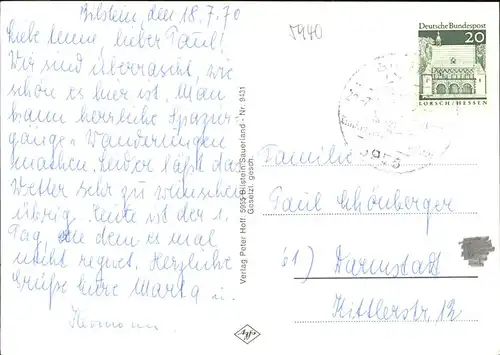 Bilstein, den 18.7.70
Liebe Lenne, lieber Paul!
Wir sind überrascht, wie
schön es hier ist. Man
kann herrliche Spazier-
gänge u. Wanderungen
machen. Leider läßt das
Wetter sehr zu wünschen
übrig. Heute ist der 1.
Tag, an dem es mal
nicht regnet. Herzliche
Grüße Eure Marta u.
Hermann
Verlag Peter Hoff 5955 Bilstein/Sauerland - Nr. 9431
Gesetzl. gesch.
5940
Deutsche Bundespost
20
LORSCH/HESSEN
5955
Familie
Paul Schönberger
61) Darmstadt
Kittlerstr. 12